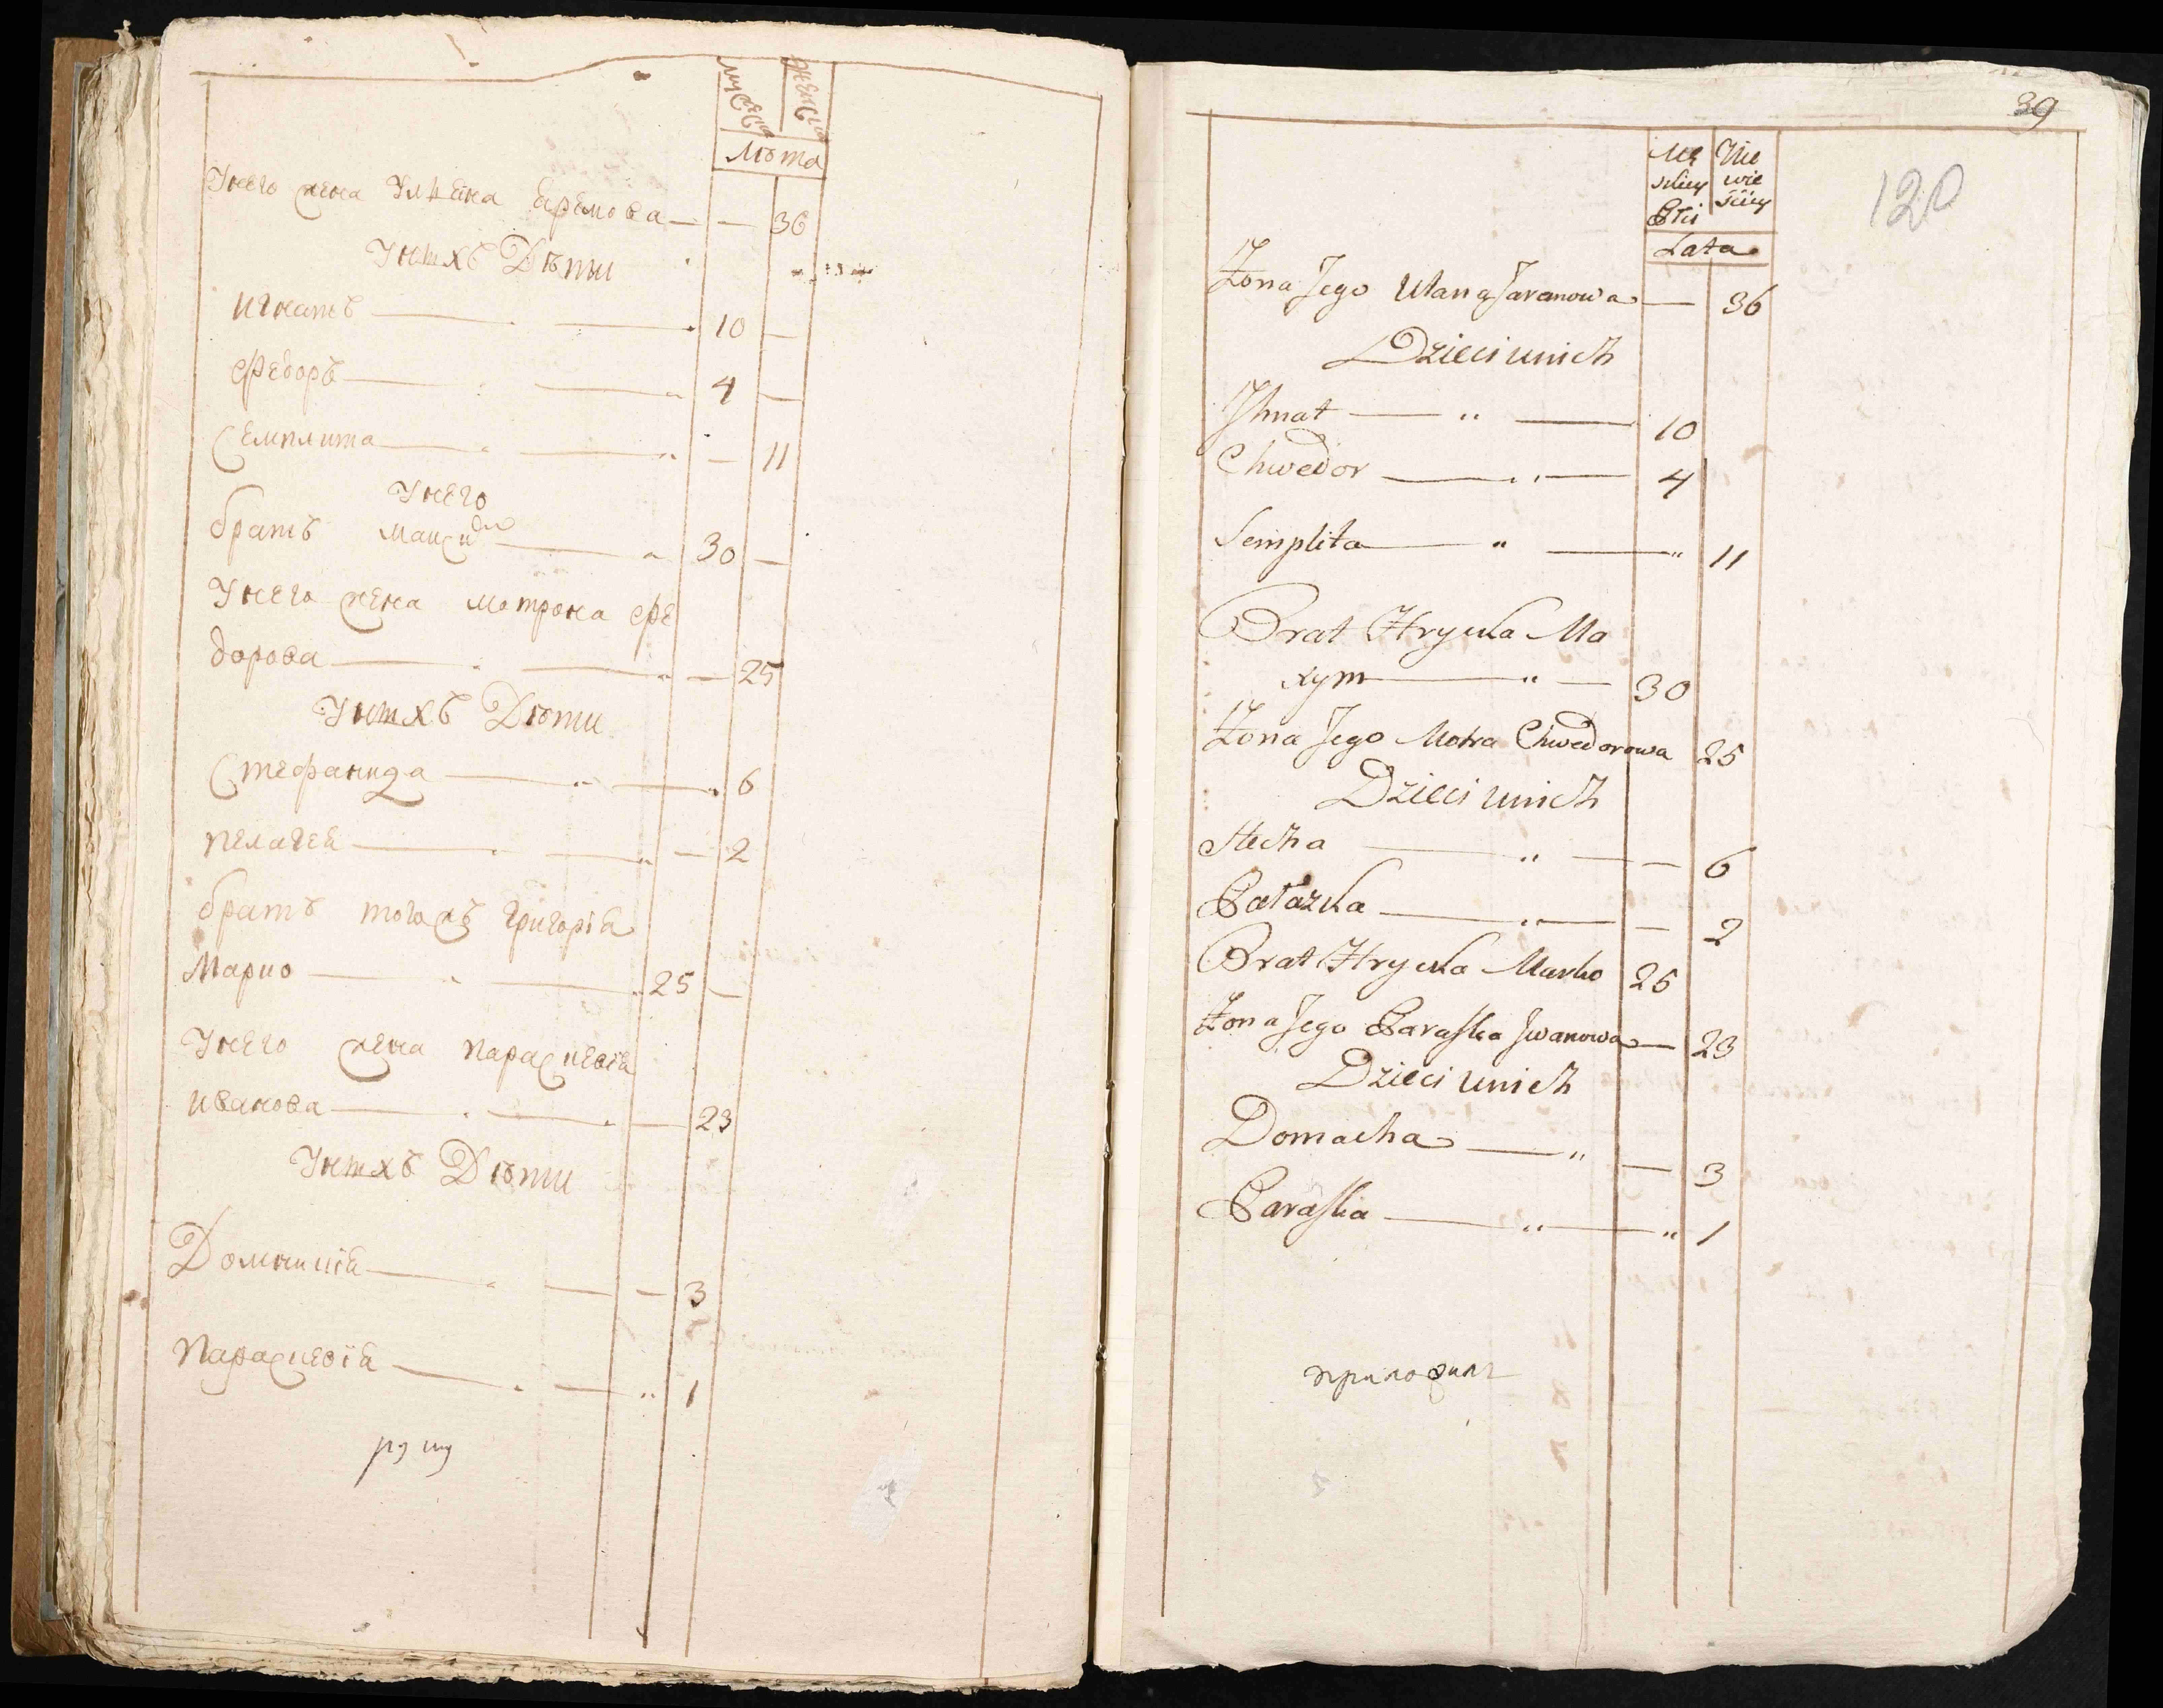 мужеска женска
Лѣта
Унего жена Ульяна Ефремова — — 36
Унихъ Дѣти
Игнатъ — — 10 —
Федоръ — — 4 —
Семплита — — — 11
Унего
братъ Максимъ — 30 —
Унего жена Мотрона Фе
дорова — — — 25
Унихъ Дѣти
Стефанида — — 6
Пелагея — — — 2
братъ тогожъ Григорія
Марко — — 25 —
Унего жена Параскевія
Иванова — — — 23
Унихъ Дѣти
Домникія — — — 3
Параскевія — — 1
39
120
Mę Nie
skiey wie
Płci ściey
Lata
Żona Jego Ulana Jaremowa — 36
Dzieci unich
Jhnat — " — 10
Chwedor — " — 4
Semplita — " — " 11
Brat Hrycka Ma
xym — " — 30
Żona Jego Motra Chwedorowa 25
Dzieci unich
Stecha — " — — 6
Pałazka — " — — 2
Brat Hrycka Marko 25
Żona Jego Paraska Jwanowa — 23
Dzieci unich
Domacha — " — 3
Paraska — " — " 1
приложилъ